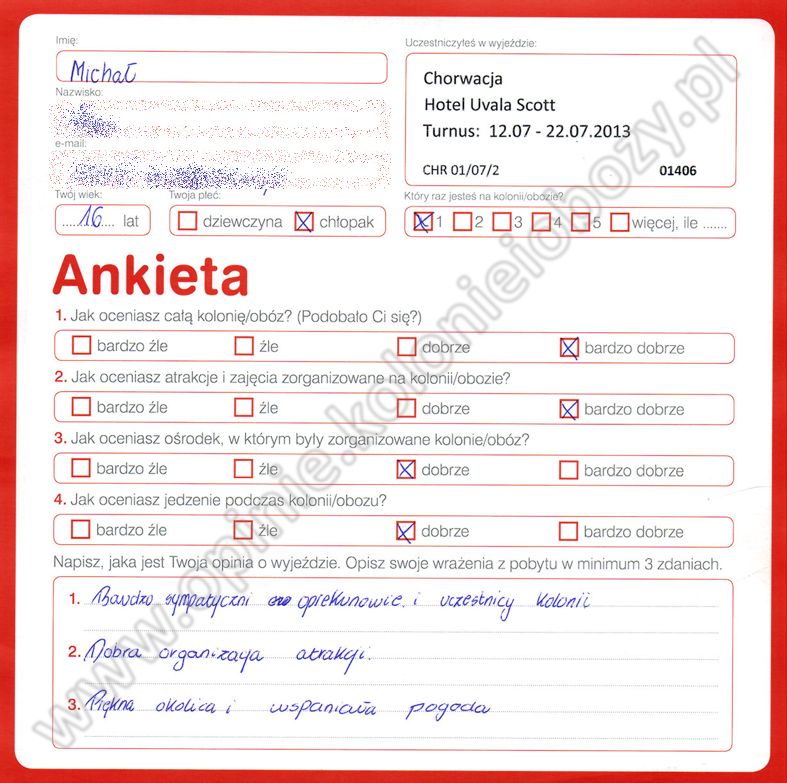 Imię:
Michał
Nazwisko:
e-mail:
Twój wiek:
16 lat
Twoja płeć:
dziewczyna chłopak
Uczestniczyłeś w wyjeździe:
Chorwacja
Hotel Uvala Scott
Turnus: 12.07 - 22.07.2013
CHR 01/07/2 01406
Który raz jesteś na kolonii/obozie?
1 2 3 4 5 więcej, ile .......
Ankieta
1. Jak oceniasz całą kolonię/obóz? (Podobało Ci się?)
bardzo źle źle dobrze bardzo dobrze
2. Jak oceniasz atrakcje i zajęcia zorganizowane na kolonii/obozie?
bardzo źle źle dobrze bardzo dobrze
3. Jak oceniasz ośrodek, w którym były zorganizowane kolonie/obóz?
bardzo źle źle dobrze bardzo dobrze
4. Jak oceniasz jedzenie podczas kolonii/obozu?
bardzo źle źle dobrze bardzo dobrze
Napisz, jaka jest Twoja opinia o wyjeździe. Opisz swoje wrażenia z pobytu w minimum 3 zdaniach.
1. Bardzo sympatyczni opiekunowie. i uczestnicy kolonii
2. Dobra organizacja atrakcji.
3. Piękna okolica i wspaniała pogoda
www.opinie.kolonieiobozy.pl